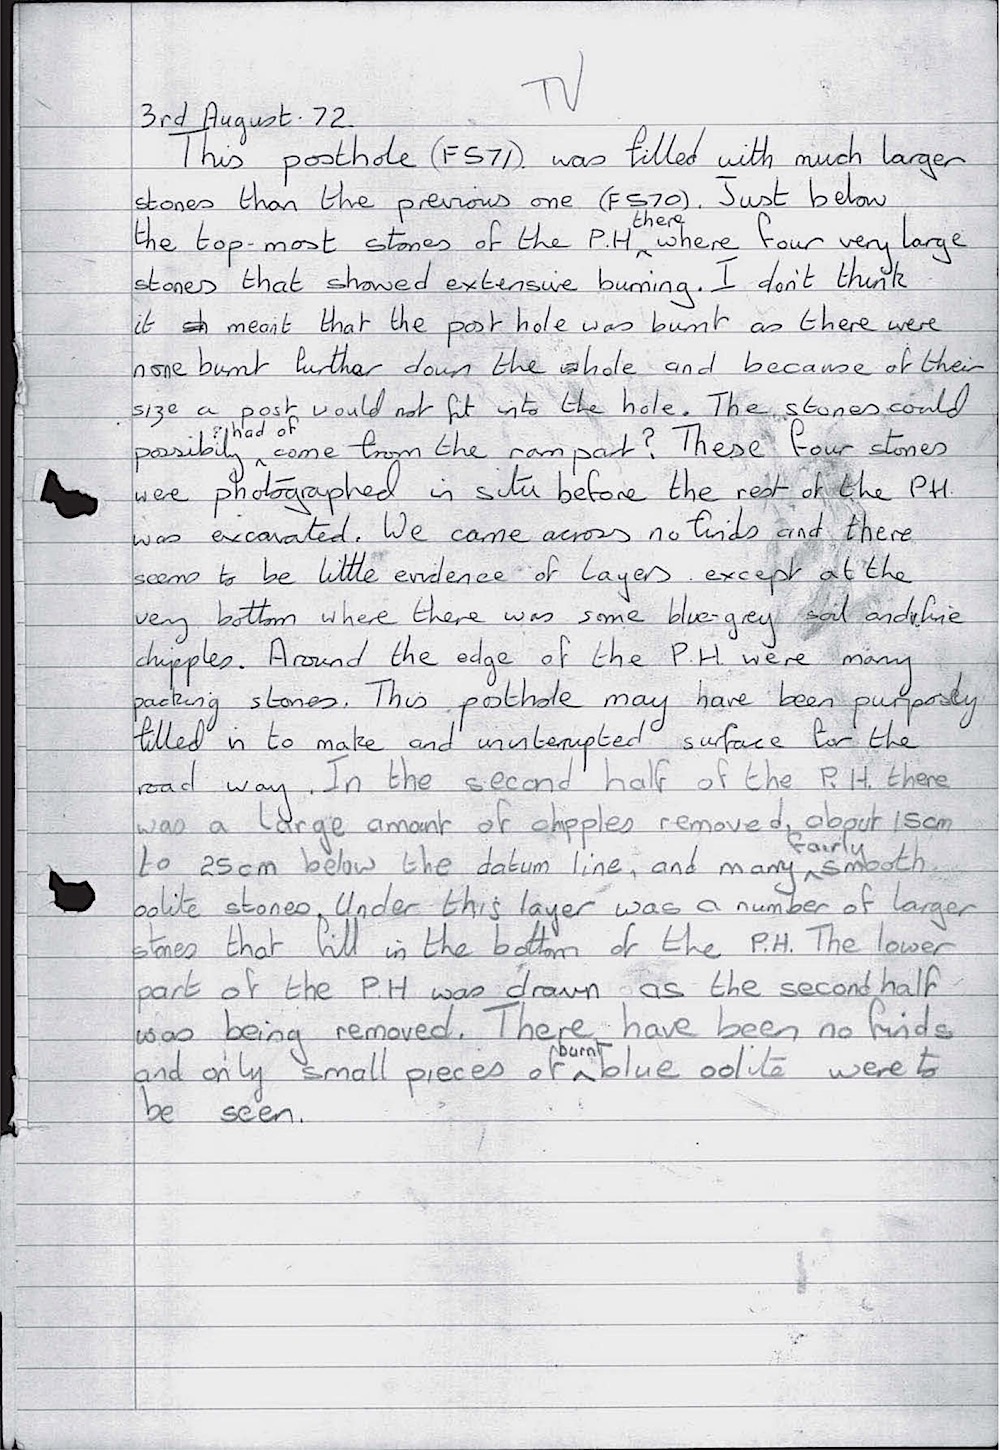 TV
3rd August. 72.
This posthole (FS71) was filled with much larger
stones than the previous one (FS70). Just below
the top-most stones of the P.H ^there where four very large
stones that showed extensive burning. I don't think
it meant that the post hole was burnt as there were
none burnt further down the hole and because of their
size a post would not fit into the hole. The stones could
possibily ^had of come from the rampart? These four stones
were photographed in situ before the rest of the P.H.
was excavated. We came across no finds and there
seems to be little evidence of layers except at the
very bottom where there was some blue-grey soil and fine
chipples. Around the edge of the P.H. were many
packing stones. This posthole may have been purposly
filled in to make and uninterupted surface for the
road way. In the second half of the P.H. there
was a large amount of chipples removed, about 15cm
to 25cm below the datum line, and many ^fairly smooth
oolite stones. Under this layer was a number of larger
stones that fill in the bottom of the P.H. The lower
part of the P.H was drawn as the second half
was being removed. There have been no finds
and only small pieces of ^burnt blue oolite were to
be seen.